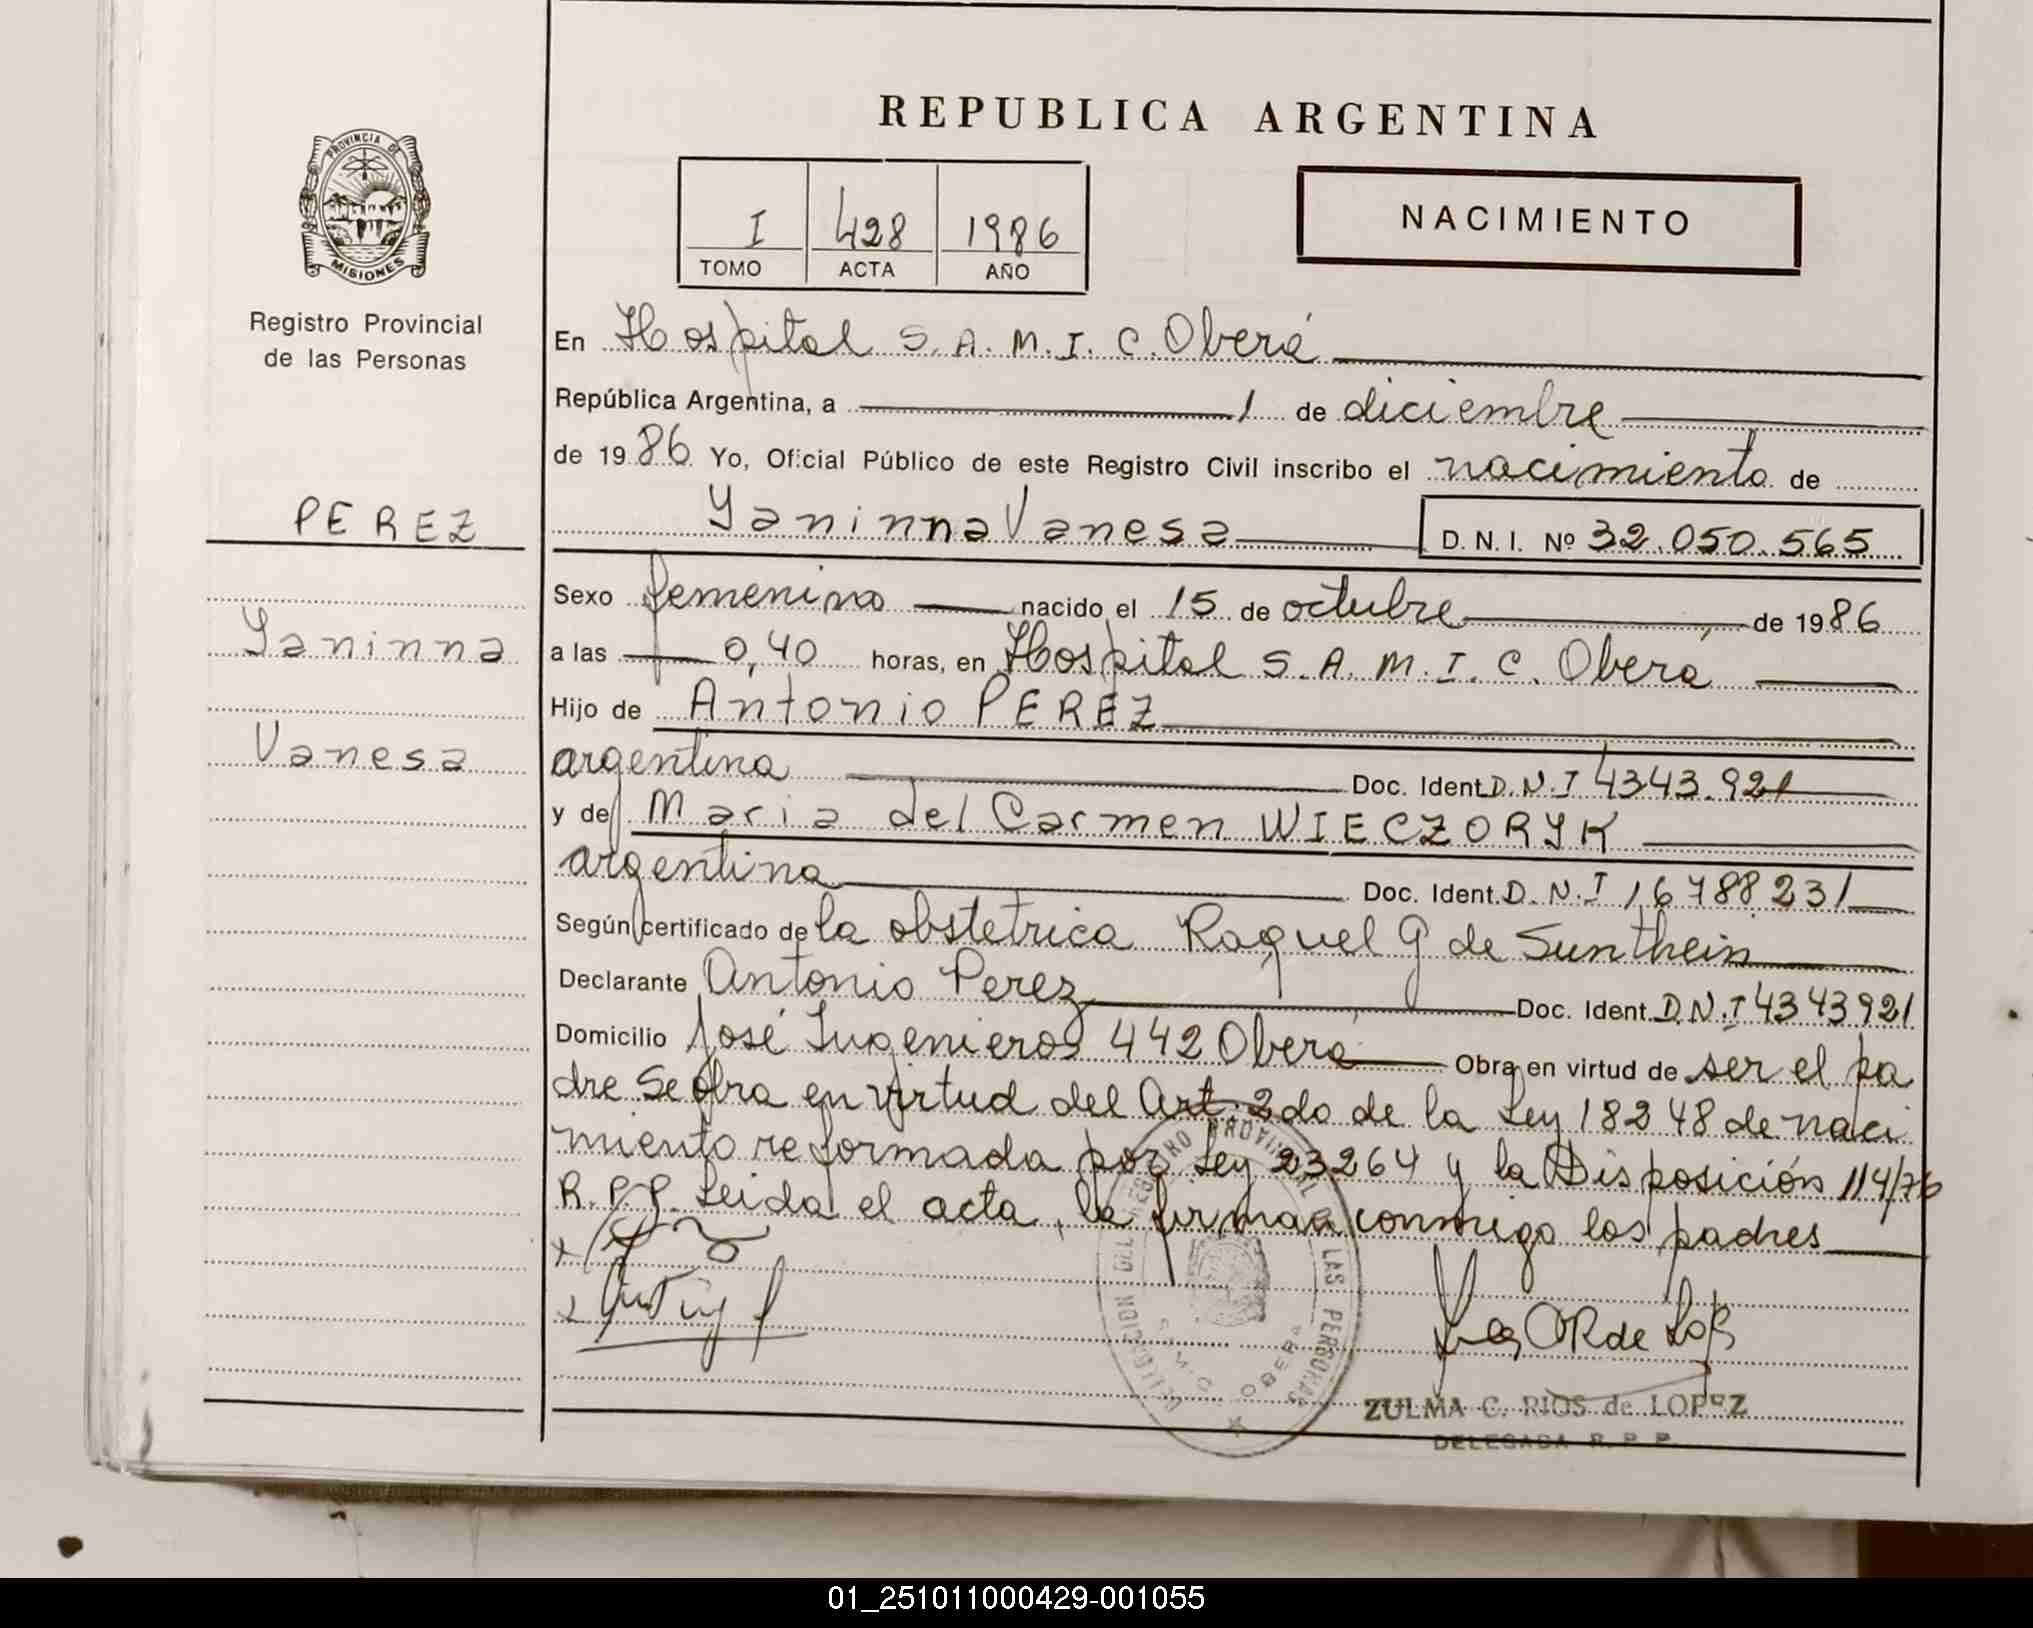 REPUBLICA ARGENTINA
PROVINCIA DE
MISIONES
Registro Provincial
de las Personas
I 428 1986
TOMO ACTA AÑO
NACIMIENTO
En Hospital S.A.M.I.C. Oberá
República Argentina, a 1 de diciembre
de 1986 Yo, Oficial Público de este Registro Civil inscribo el nacimiento de
PEREZ
Yaninna Vanesa D.N.I. Nº 32.050.565
Sexo femenino nacido el 15 de octubre de 1986
Yaninna
a las 0,40 horas, en Hospital S.A.M.I.C. Oberá
Hijo de Antonio PEREZ
Vanesa
argentina Doc. Ident. D.N.I 4343.921
y de Maria del Carmen WIECZORYK
argentina Doc. Ident. D.N.I 16788231
Según certificado de la obstetrica Raquel G de Sunthein
Declarante Antonio Perez Doc. Ident. D.N.I 4343921
Domicilio José Ingenieros 442 Oberá Obra en virtud de ser el pa
dre Se obra en virtud del Art. 2do de la Ley 18248 de naci
miento reformada por Ley 23264 y la Disposición 114/76
R.P.P. Leida el acta, la firman conmigo los padres
DELEGACION DEL REGISTRO PROVINCIAL DE LAS PERSONAS
OBERA
ZULMA C. RIOS de LOPEZ
DELEGADA R.P.P.
01_251011000429-001055